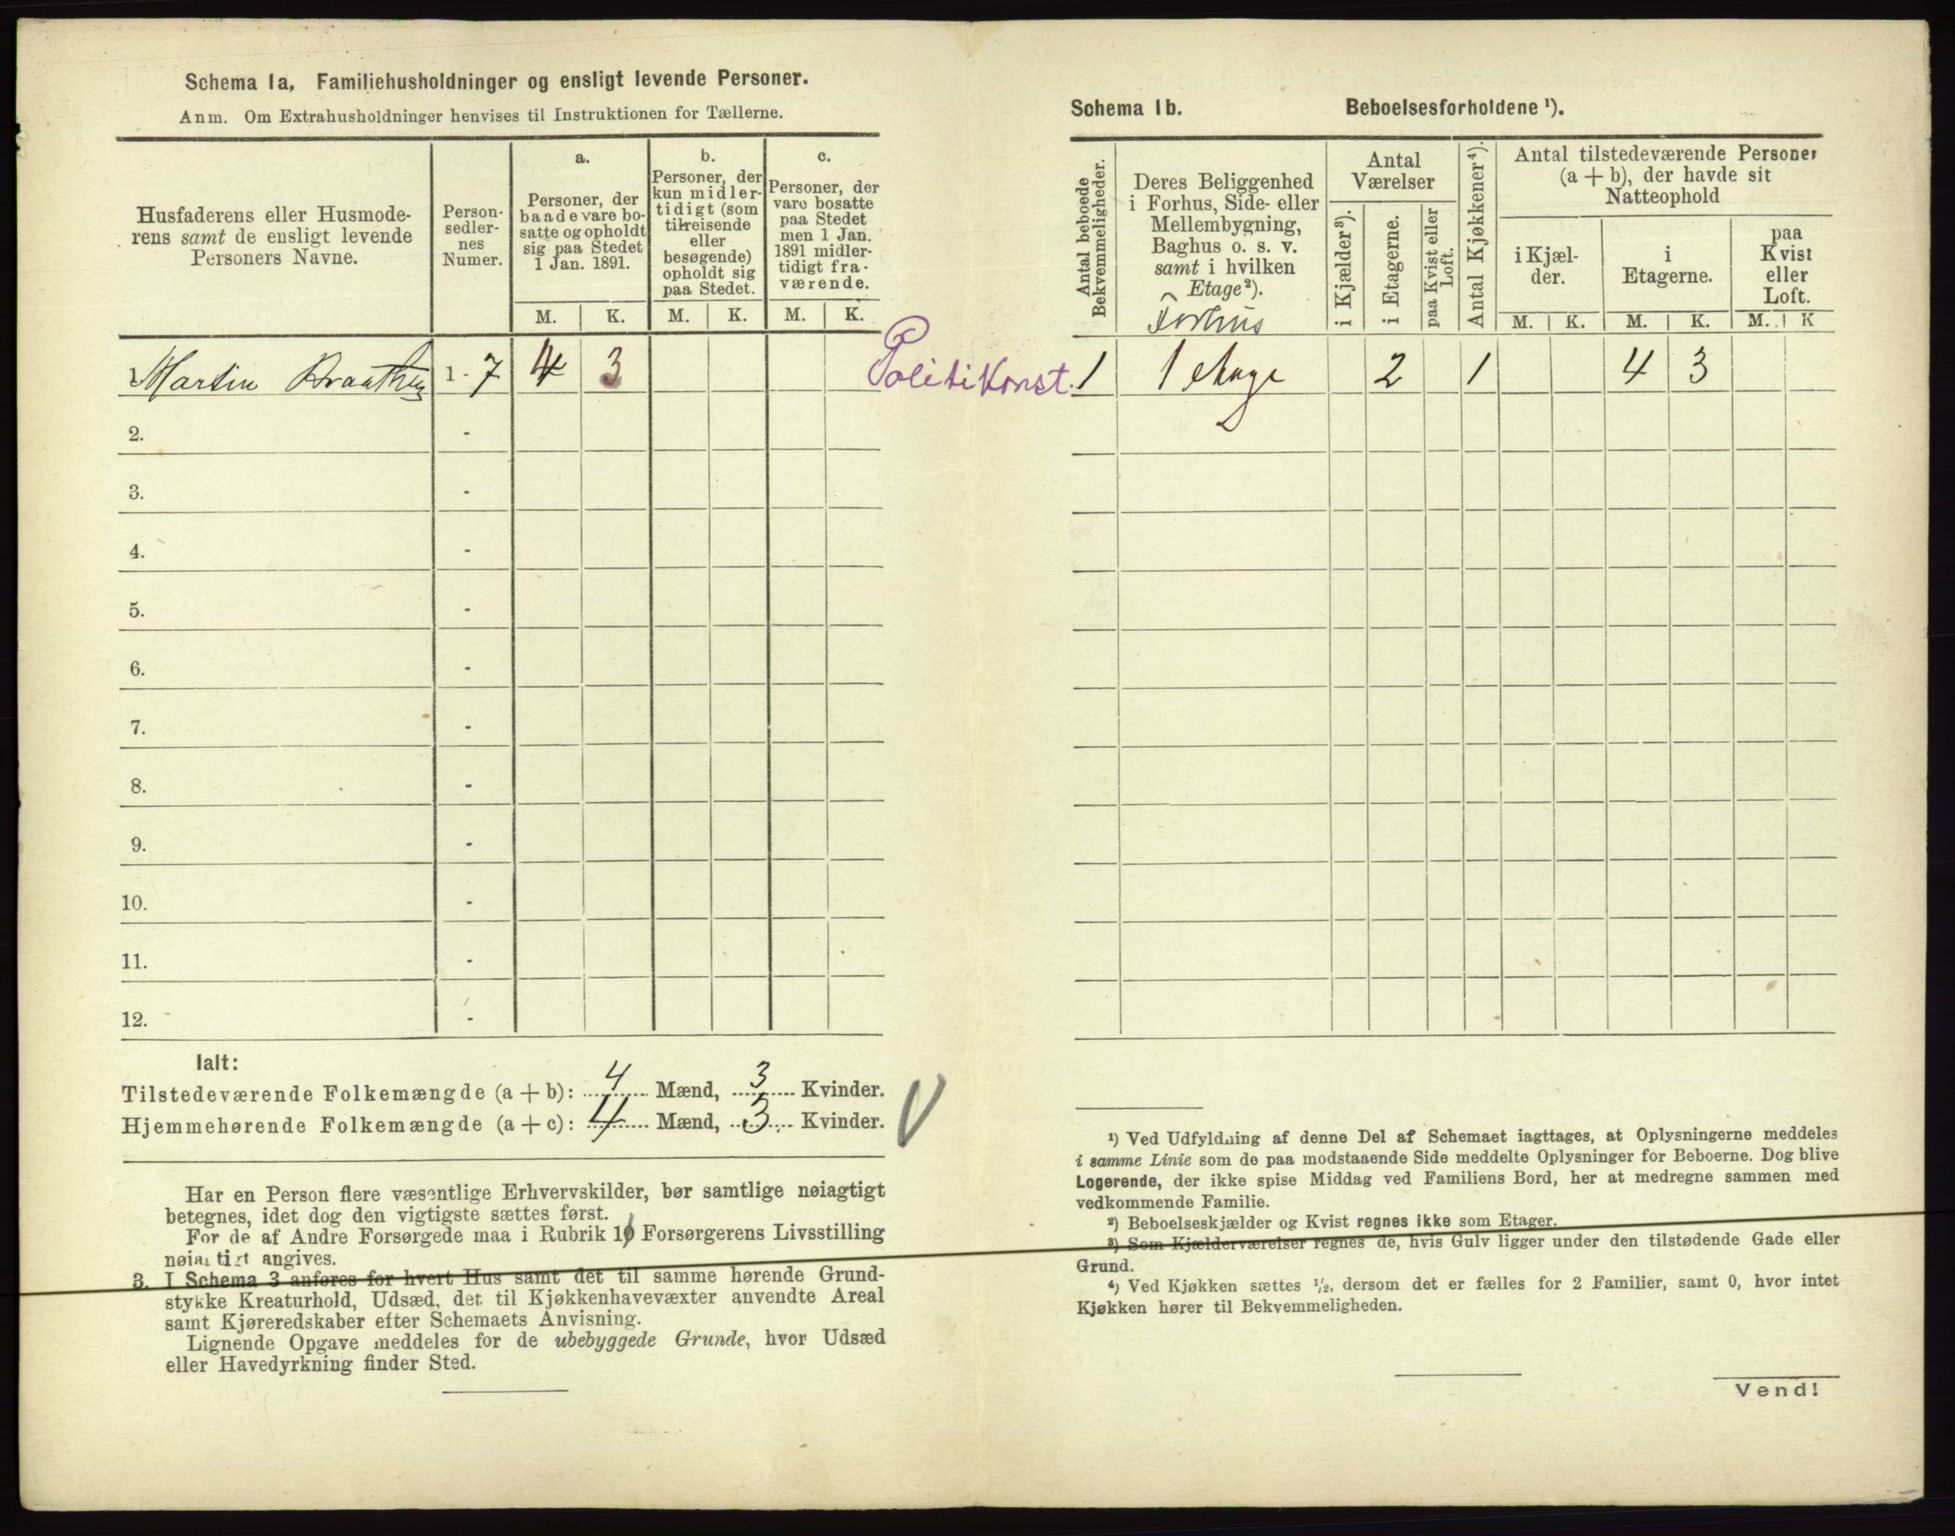 Schema 1a, Familiehusholdninger og ensligt levende Personer.
Anm. Om Extrahusholdninger henvises til Instruktionen for Tællerne.
Husfaderens eller Husmode-
rens samt de ensligt levende
Personers Navne.
Person-
sedler-
nes
Numer.
a.
Personer, der
baade vare bo-
satte og opholdt
sig paa Stedet
1 Jan. 1891.
b.
Personer, der
kun midler-
tidigt (som
tilreisende
eller
besøgende)
opholdt sig
paa Stedet.
c.
Personer, der
vare bosatte
paa Stedet
men 1 Jan.
1891 midler-
tidigt fra-
værende.
M. K. M. K. M. K.
1. Martin Braathen 1 - 7 4 3
Politikonst.
2. -
3. -
4. -
5. -
6. -
7. -
8. -
9. -
10. -
11. -
12. -
Ialt:
Tilstedeværende Folkemængde (a + b): 4 Mænd, 3 Kvinder.
Hjemmehørende Folkemængde (a + c): 4 Mænd, 3 Kvinder.
Har en Person flere væsentlige Erhvervskilder, bør samtlige nøiagtigt
betegnes, idet dog den vigtigste sættes først.
For de af Andre Forsørgede maa i Rubrik 10 Forsørgerens Livsstilling
nøiagtigt angives.
3. I Schema 3 anføres for hvert Hus samt det til samme hørende Grund-
stykke Kreaturhold, Udsæd, det til Kjøkkenhavevæxter anvendte Areal
samt Kjøreredskaber efter Schemaets Anvisning.
Lignende Opgave meddeles for de ubebyggede Grunde, hvor Udsæd
eller Havedyrkning finder Sted.
Schema 1b. Beboelsesforholdene ¹).
Antal beboede
Bekvemmeligheder.
Deres Beliggenhed
i Forhus, Side- eller
Mellembygning,
Baghus o. s. v.
samt i hvilken
Etage²).
Antal
Værelser
i Kjælder³).
i Etagerne.
paa Kvist eller
Loft.
Antal Kjøkkener⁴).
Antal tilstedeværende Personer
(a + b), der havde sit
Natteophold
i Kjæl-
der.
i
Etagerne.
paa
Kvist
eller
Loft.
M. K. M. K. M. K
Forhus
1 1 etage 2 1 4 3
¹) Ved Udfyldning af denne Del af Schemaet iagttages, at Oplysningerne meddeles
i samme Linie som de paa modstaaende Side meddelte Oplysninger for Beboerne. Dog blive
Logerende, der ikke spise Middag ved Familiens Bord, her at medregne sammen med
vedkommende Familie.
²) Beboelseskjælder og Kvist regnes ikke som Etager.
³) Som Kjælderværelser regnes de, hvis Gulv ligger under den tilstødende Gade eller
Grund.
⁴) Ved Kjøkken sættes ¹/₂, dersom det er fælles for 2 Familier, samt 0, hvor intet
Kjøkken hører til Bekvemmeligheden.
Vend!